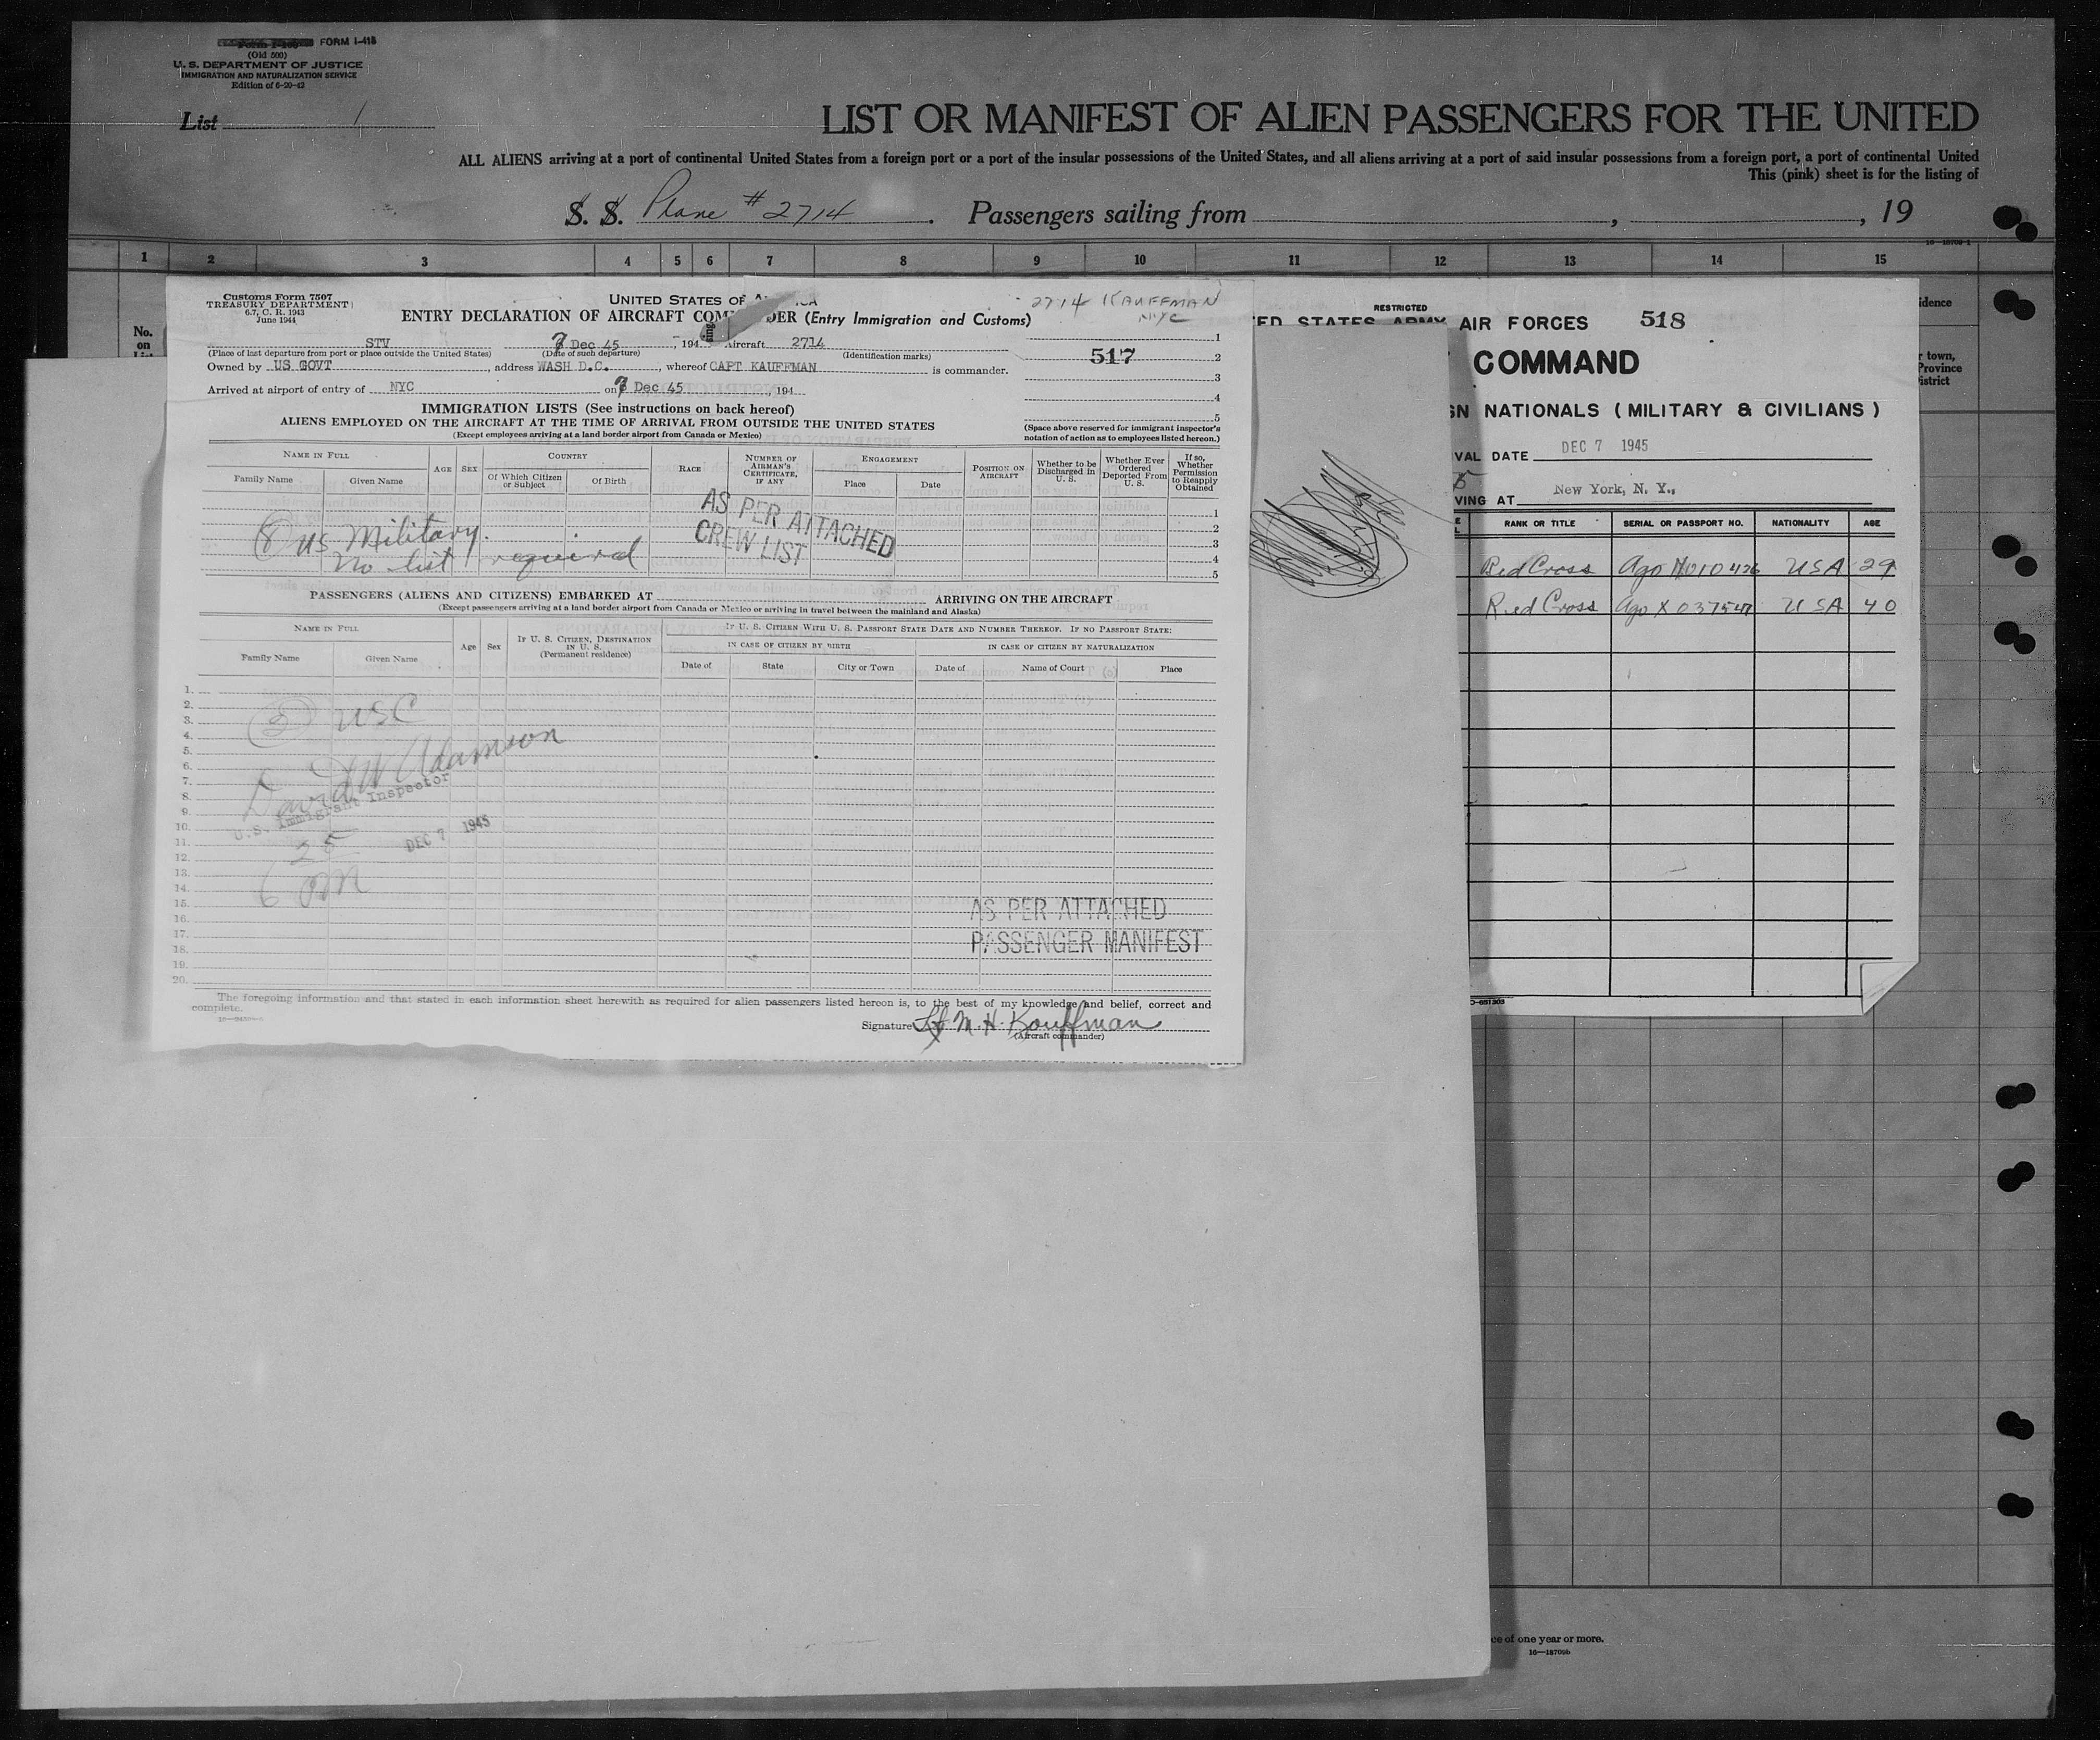 FORM I-418
(Old 500)
U. S. DEPARTMENT OF JUSTICE
IMMIGRATION AND NATURALIZATION SERVICE
Edition of 6-20-42
List 1
LIST OR MANIFEST OF ALIEN PASSENGERS FOR THE UNITED
ALL ALIENS arriving at a port of continental United States from a foreign port or a port of the insular possessions of the United States, and all aliens arriving at a port of said insular possessions from a foreign port, a port of continental United
This (pink) sheet is for the listing of
S. S. Plane # 2714 . Passengers sailing from , , 19
1 2 3 4 5 6 7 8 9 10 11 12 13 14 15
No.
on
Customs Form 7507
TREASURY DEPARTMENT
6.7, C. R. 1943
June 1944
UNITED STATES OF
2714 KAUFFMAN
NYC
ENTRY DECLARATION OF AIRCRAFT COM DER (Entry Immigration and Customs)
STV 7 Dec 45, 194 Aircraft 2714
(Place of last departure from port or place outside the United States) (Date of such departure) (Identification marks)
Owned by US GOVT, address WASH D.C., whereof CAPT KAUFFMAN is commander.
Arrived at airport of entry of NYC on 7 Dec 45, 194
1
517 2
3
4
5
(Space above reserved for immigrant inspector's
notation of action as to employees listed hereon.)
IMMIGRATION LISTS (See instructions on back hereof)
ALIENS EMPLOYED ON THE AIRCRAFT AT THE TIME OF ARRIVAL FROM OUTSIDE THE UNITED STATES
(Except employees arriving at a land border airport from Canada or Mexico)
NAME IN FULL
Family Name Given Name
AGE SEX
COUNTRY
Of Which Citizen or Subject Of Birth
RACE
NUMBER OF AIRMAN'S CERTIFICATE, IF ANY
ENGAGEMENT
Place Date
POSITION ON AIRCRAFT
Whether to be Discharged in U. S.
Whether Ever Ordered Deported From U. S.
If so, Whether Permission to Reapply Obtained
1
2
3
4
5
AS PER ATTACHED
CREW LIST
8 US Military.
No list required
PASSENGERS (ALIENS AND CITIZENS) EMBARKED AT ARRIVING ON THE AIRCRAFT
(Except passengers arriving at a land border airport from Canada or Mexico or arriving in travel between the mainland and Alaska)
NAME IN FULL
Family Name Given Name
Age Sex
IF U. S. CITIZEN, DESTINATION IN U. S. (Permanent residence)
IF U. S. CITIZEN WITH U. S. PASSPORT STATE DATE AND NUMBER THEREOF. IF NO PASSPORT STATE:
IN CASE OF CITIZEN BY BIRTH IN CASE OF CITIZEN BY NATURALIZATION
Date of State City or Town Date of Name of Court Place
1.
2.
3.
4.
5.
6.
7.
8.
9.
10.
11.
12.
13.
14.
15.
16.
17.
18.
19.
20.
2 USC
David W Adamson
U.S. Immigrant Inspector
DEC 7 1945
AS PER ATTACHED
PASSENGER MANIFEST
The foregoing information and that stated in each information sheet herewith as required for alien passengers listed hereon is, to the best of my knowledge and belief, correct and
complete.
Signature Lt M. H. Kauffman
(Aircraft commander)
RESTRICTED
ED STATES ARMY AIR FORCES 518
COMMAND
GN NATIONALS (MILITARY & CIVILIANS)
VAL DATE DEC 7 1945
VING AT New York, N. Y.,
RANK OR TITLE SERIAL OR PASSPORT NO. NATIONALITY AGE
Red Cross Ago USA 29
Red Cross Ago X 037547 USA 40
idence
r town,
Province
istrict
ce of one year or more.
16—18706b